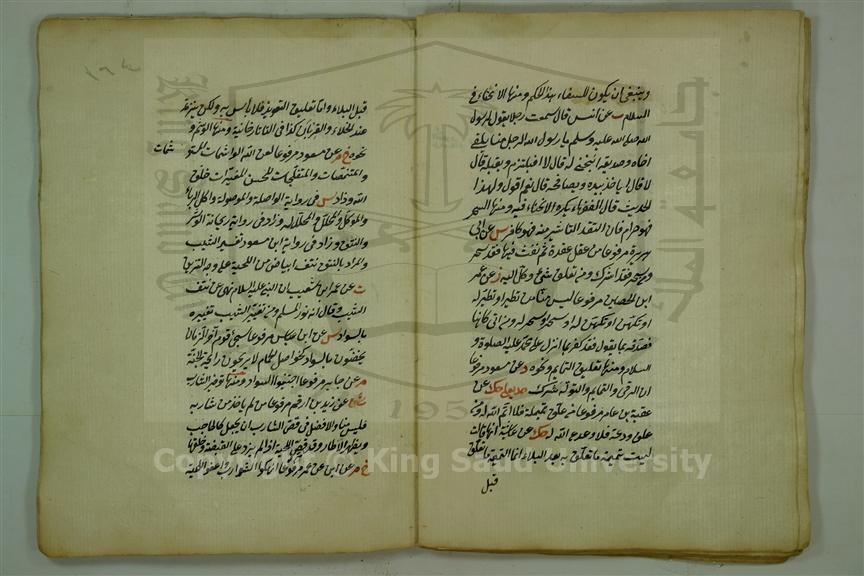 وينبغي ان يكون للسفهاء بهذا الحكم ومنها الانحناء في
السلام ت عن انس قال سمعت رجلا يقول لرسول
الله صلى الله عليه وسلم يا رسول الله الرجل منا يلقى
اخاه وصديقه اينحني له قال لا افيلتزمه ويقبله قال
لا قال ايأخذ بيده ويصافحه قال نعم اقول ولهذا
الحديث قال الفقهاء يكره الانحناء فيه ومنها السحر
فهو حرام فان اعتقد التأثير منه فهو كافر س عن ابي
هريرة مرفوعا من عقد عقدة ثم نفث فيها فقد سحر
ومن سحر فقد اشرك ومن تعلق بشئ وكل اليه ز عن عمر
ابن الحصين مرفوعا ليس منا من تطير او تطير له
او تكهن او تكهن له او سحر او سحر له ومن اتى كاهنا
فصدقه بما يقول فقد كفر بما انزل على محمد عليه الصلوة و
السلام ومنها تعليق التمايم ونحوه د عن مسعود مرفوعا
ان الرقى والتمايم والتولة شرك حد يعلى حك عن
عقبة بن عامر مرفوعا من علق تميمة فلا اتم الله له ومن
علق ودعة فلا ودع الله له حك عن عائشة انها قالت
ليست تميمة ما تعلق به بعد البلاء انما التميمة ما تعلق
قبل
قبل البلاء واما تعليق التعويذ فلا بأس به ولكن ينزعه
عند الخلاء والقربان كذا في التاتارخانية ومنها الوشم و
نحوه خ م عن مسعود مرفوعا لعن الله الواشمات والمستو
شمات
والمتنمصات والمتفلجات للحسن المغيرات خلق
الله وزاد س في رواية الواصلة والموصولة واكل الربا
والموكل والمحلل والمحلل له وزاد في رواية ريحانة الوشر
والنتف وزاد في رواية ابن مسعود تغيير الشيب
والمراد بالنتف نتف ابياض من اللحية على وجه التزين
ت عن عمر ابن شعيب ان النبي عليه السلام نهى عن نتف
الشيب وقال انه نور المسلم ومن تغيير الشيب تغييره
بالسواد س عن ابن عباس مرفوعا سيجئ اقوم آخر الزمان
يخضبون بالسواد كحواصل الحمام لا يريحون رائحة الجنة
م عن جابر مرفوعا اجتنبوا السواد ومنها توفير الشارب
عن زيد بن ارقم مرفوعا من لم ياخذ من شاربه
فليس منا والافضل في قص الشارب ان يجعل كالحاجب
ويظهر الاطار وقد قص اللحية اذا لم يزد على القبضة وحلقها
خ م عن ابن عمر مرفوعا انهكوا الشوارب واعفوا اللحية
Copyright © King Saud University
1957